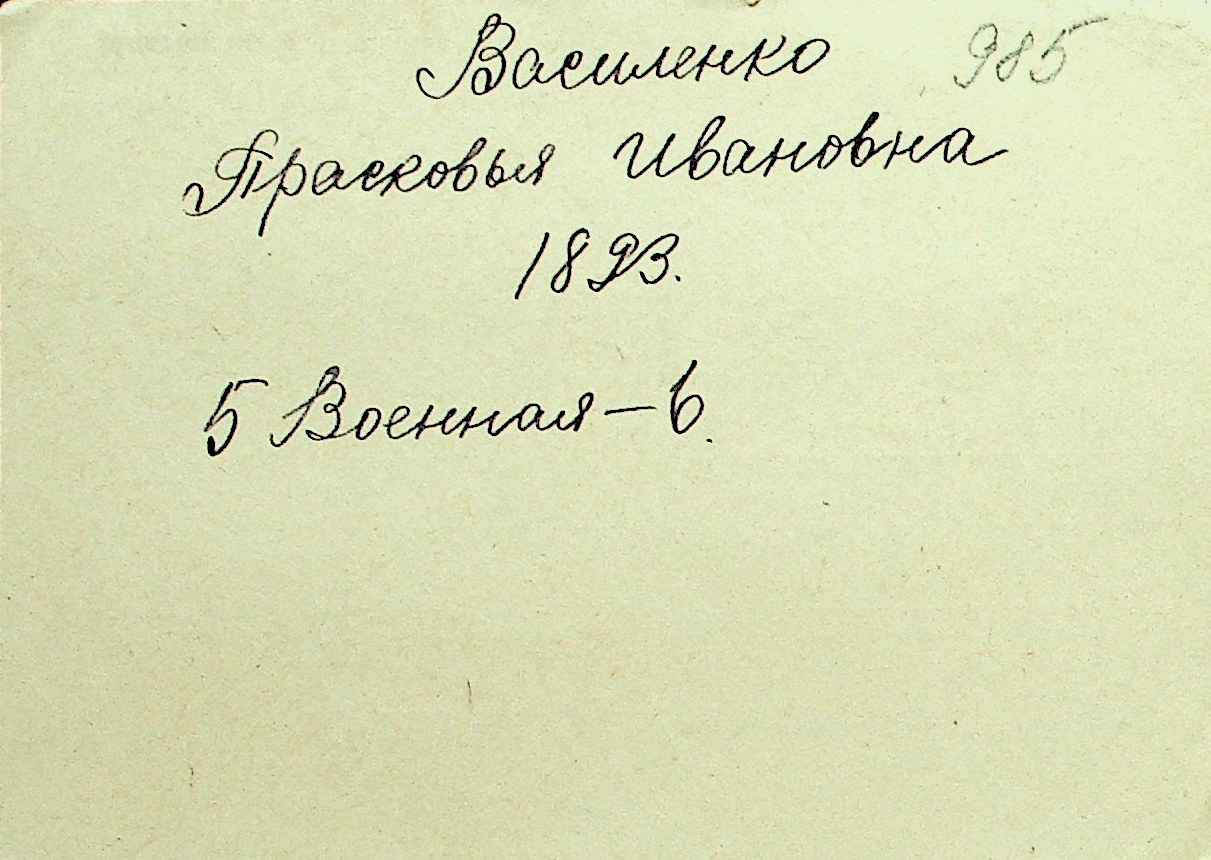 Василенко 985
Прасковья Ивановна
1893.
5 Военная – 6.